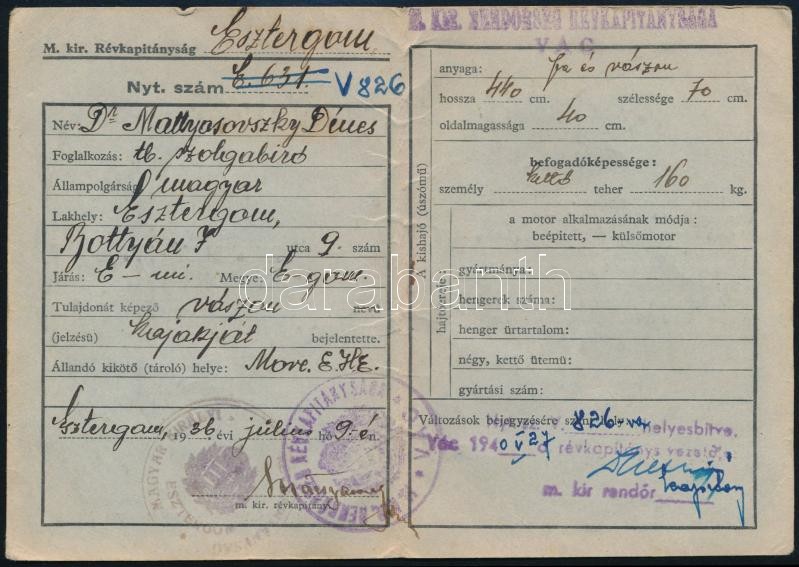 M. kir. Révkapitányság Esztergom
Nyt. szám E. 631. V 826
Név: Dr Mattyasovszky Dénes
Foglalkozás: tb. szolgabiró
Állampolgárság magyar
Lakhely: Esztergom,
Bottyán J utca 9. szám
Járás: E-mi. Megye: E-gom.
Tulajdonát képező vászon nevű
(jelzésű) kajakját bejelentette.
Állandó kikötő (tároló) helye: Move. E.H.E.
Esztergom, 1936 évi július hó 9-én.
m. kir. révkapitány.
M. KIR. RENDŐRSÉG RÉVKAPITÁNYSÁGA
VÁC
A kishajó (úszómű)
anyaga: fa és vászon
hossza 440 cm. szélessége 70 cm.
oldalmagassága 40 cm.
befogadóképessége:
személy kettő teher 160 kg.
hajtóereje:
a motor alkalmazásának módja:
beépített, — külsőmotor
gyártmánya:
hengerek száma:
henger ürtartalom:
négy, kettő ütemü:
gyártási szám:
Változások bejegyzésére 826 helyesbitve.
Vác 1940 V 27 a révkapitányság vezetője
m. kir rendőr
darabanth